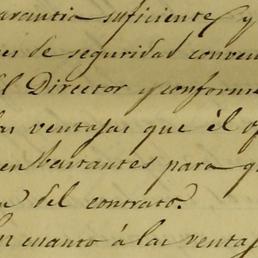 arantia suficiente, y
es de seguridad conven
el Director y conforme
las ventajas que él of
en bastantes para q
a del contrato.
En cuanto á las ventaj